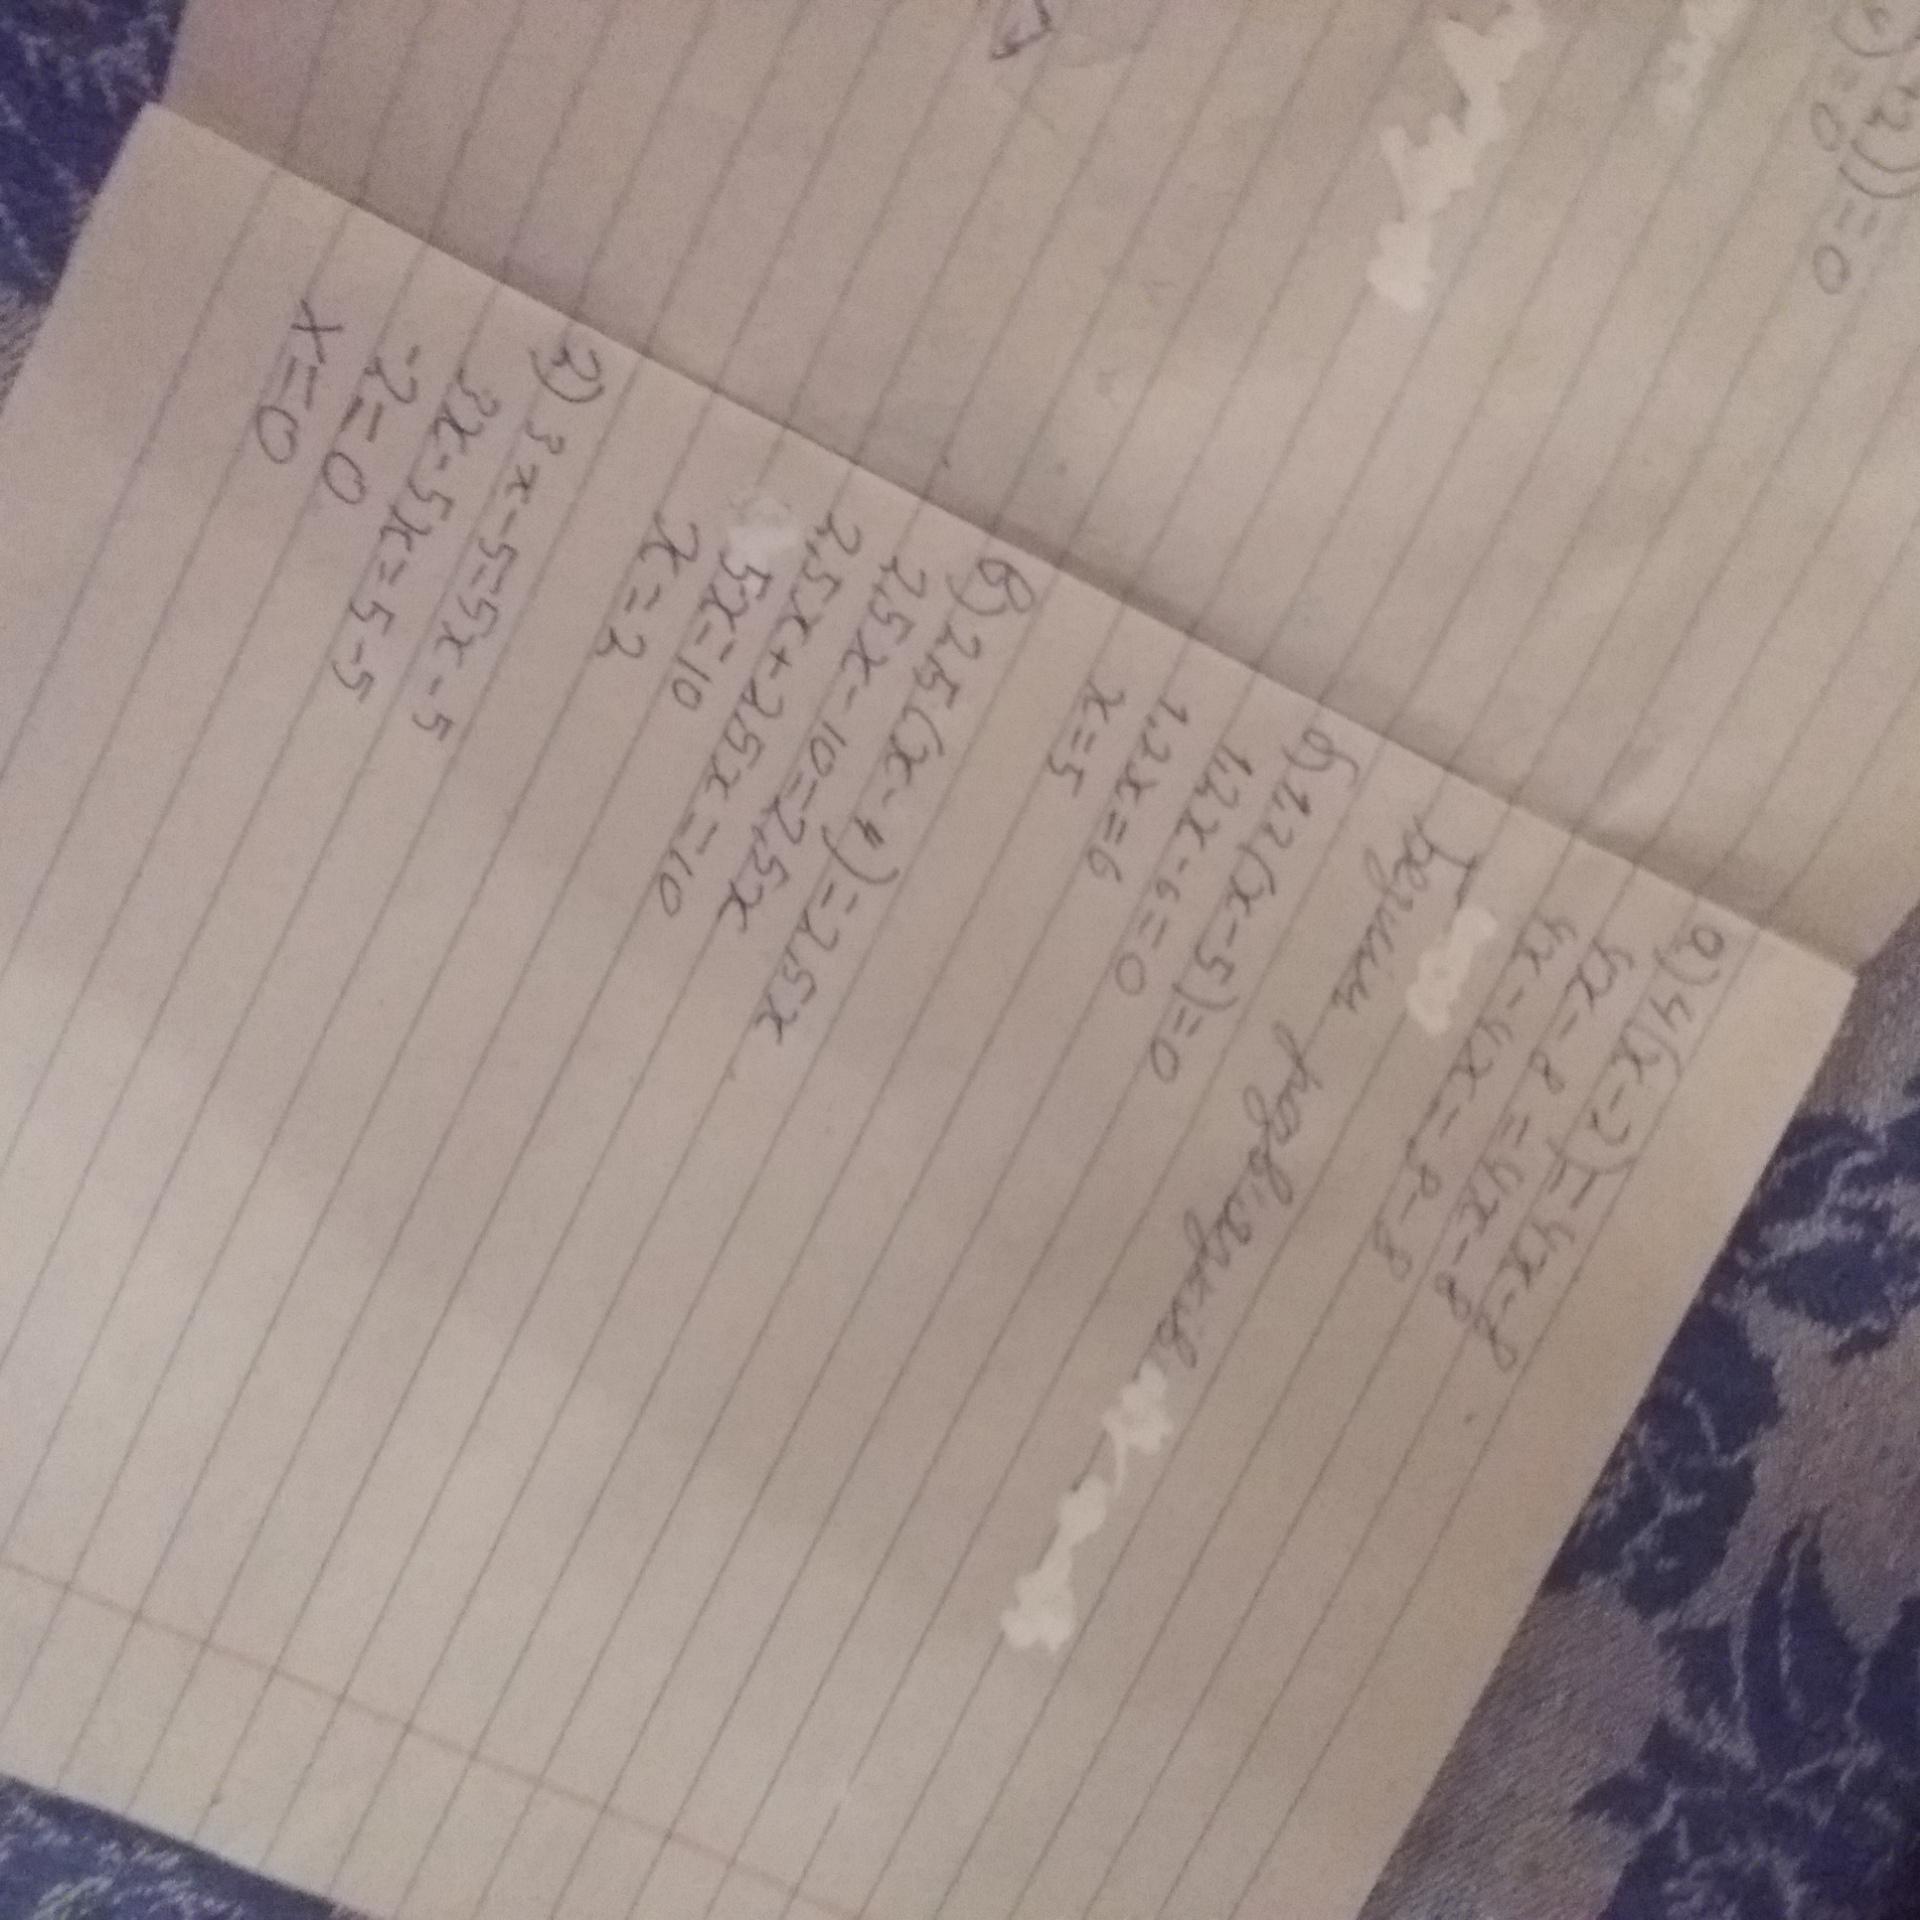 +2)) = 0
) = 0
а) 4(x-2) = 4x-8
4x - 8 = 4x - 8
4x - 4x = 8-8
б) 1,2(x-5)=0
1,2x - 6 = 0
1,2x = 6
x = 5
в) 2,5(x-4) = -2,5x
2,5x - 10 = -2,5x
2,5x + 2,5x = 10
5x = 10
x = 2
г) 3x - 5 = 5x - 5
3x - 5x = 5 - 5
-2 = 0
x = 0